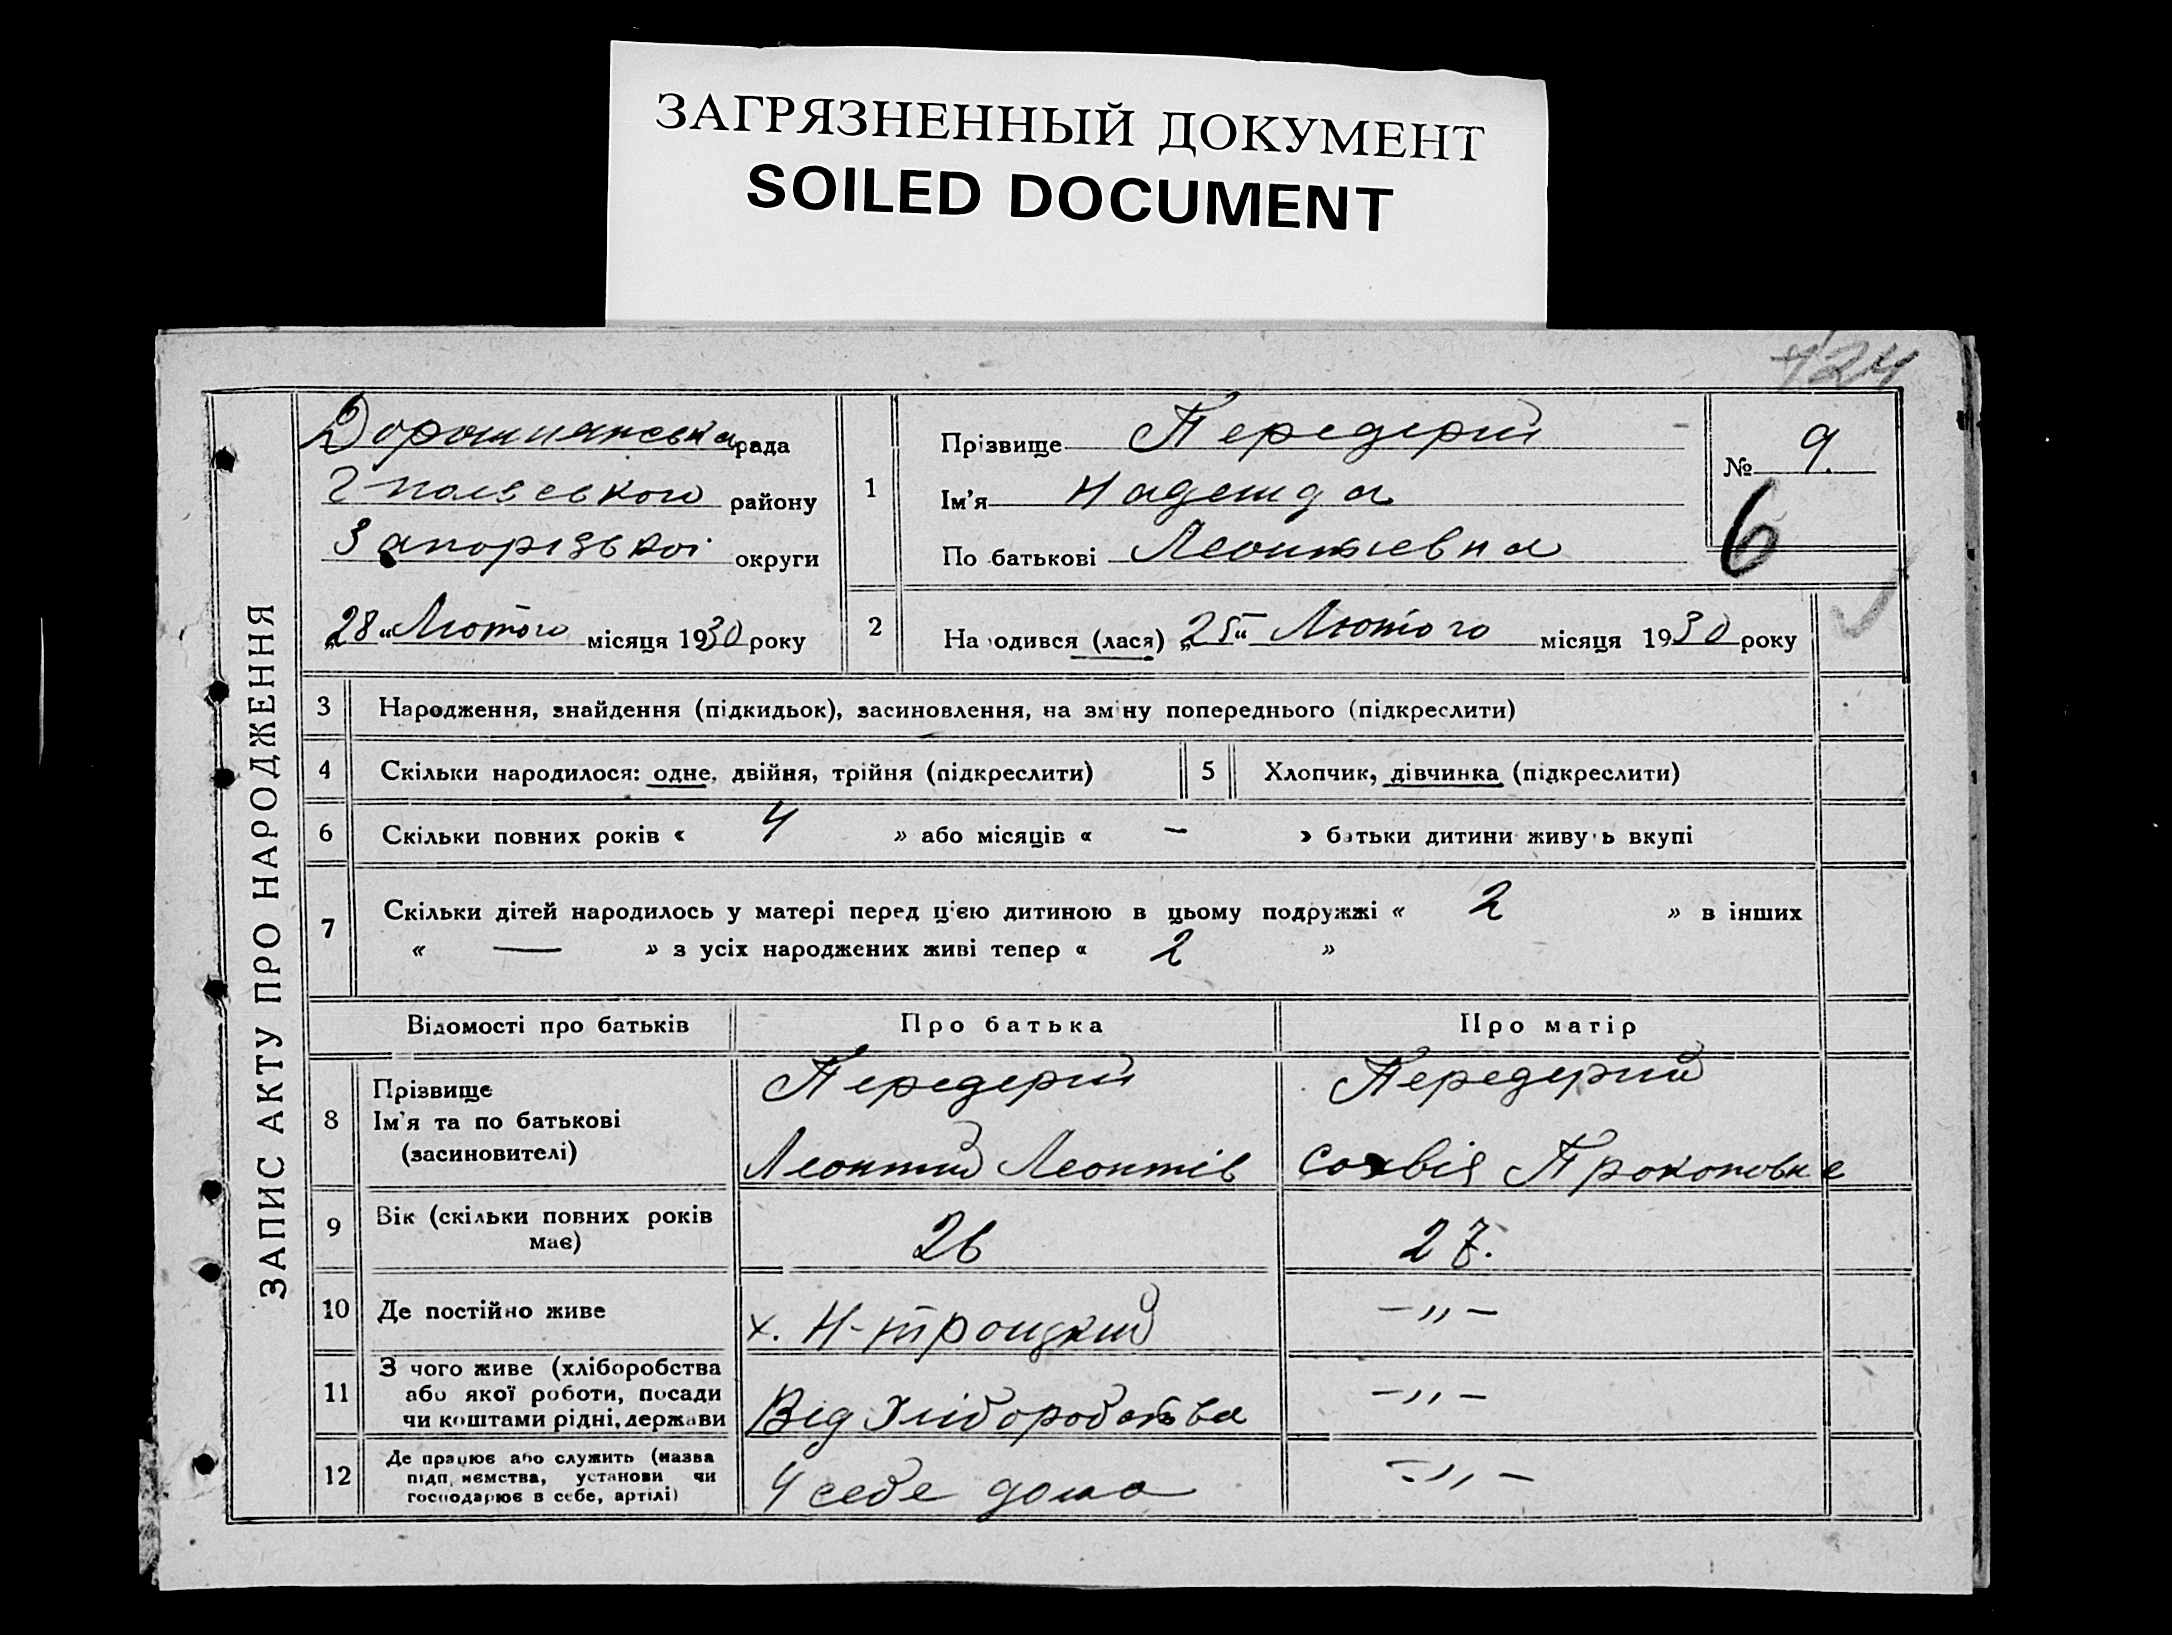 ЗАГРЯЗНЕННЫЙ ДОКУМЕНТ
SOILED DOCUMENT
424
ЗАПИС АКТУ ПРО НАРОДЖЕННЯ
Дорошнянська рада
Гполевського району
Запорізької округи
„28“ Лютого місяця 1930 року
1
Прізвище Передерій
Ім'я Надежда
По батькові Леонтіевна
№ 9.
6
2
Народився (лася) „25“ Лютого місяця 1930 року
3 Народження, знайдення (підкидьок), засиновлення, на зміну попереднього (підкреслити)
4 Скільки народилося: одне, двійня, трійня (підкреслити)
5 Хлопчик, дівчинка (підкреслити)
6 Скільки повних років « 4 » або місяців « — » батьки дитини живуть вкупі
7 Скільки дітей народилось у матері перед цією дитиною в цьому подружжі « 2 » в інших
« — » з усіх народжених живі тепер « 2 »
Відомості про батьків Про батька Про матір
8 Прізвище
Ім'я та по батькові
(засиновителі)
Передерій
Леонтий Леонтів
Передерий
Софвія Прокоповне
9 Вік (скільки повних років
має)
26
27.
10 Де постійно живе
х. Н-троицкий
— „ —
11 З чого живе (хліборобства
або якої роботи, посади
чи коштами рідні, держави
Від Хліборобства
— „ —
12 Де працює або служить (назва
підприємства, установи чи
господарює в себе, артілі)
У себе дома
— „ —